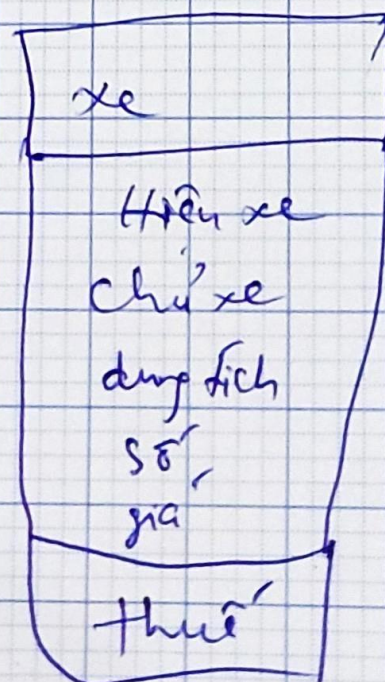 xe
Hiệu xe
chủ xe
dung tích
số
giá
thuế